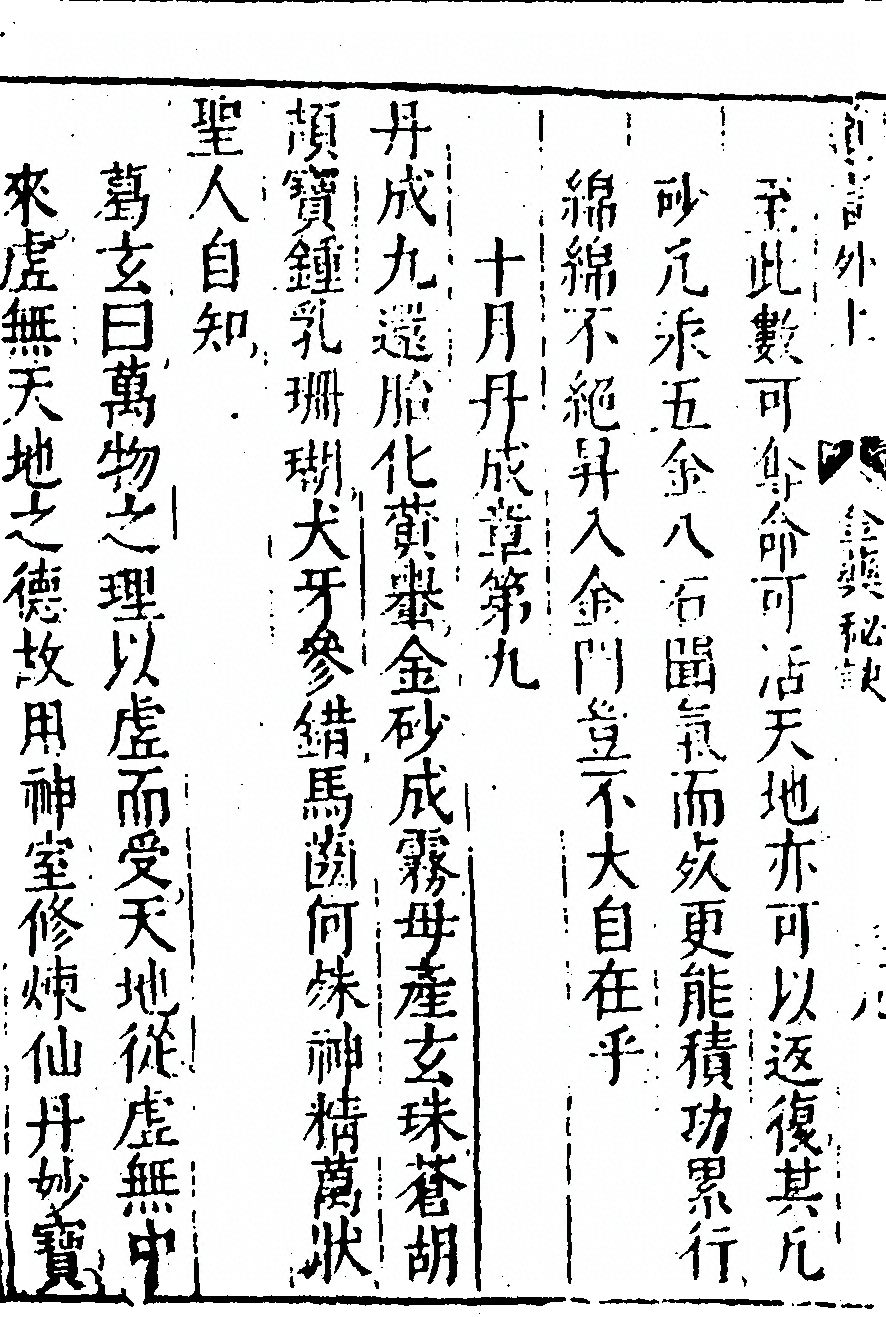 外上 金藥秘訣
至此數可奪命可活天地亦可以返復其凡
砂凡汞五金八石聞氣而死更能積功累行
綿綿不絕昇入金門豈不大自在乎
十月丹成章第九
丹成九還胎化黃轝金砂成霧母產玄珠蒼胡
頑寶鍾乳珊瑚犬牙參錯馬齒何殊神精萬狀
聖人自知
葛玄曰萬物之理以虛而受天地從虛無中
來虛無天地之德故用神室修煉仙丹妙寶